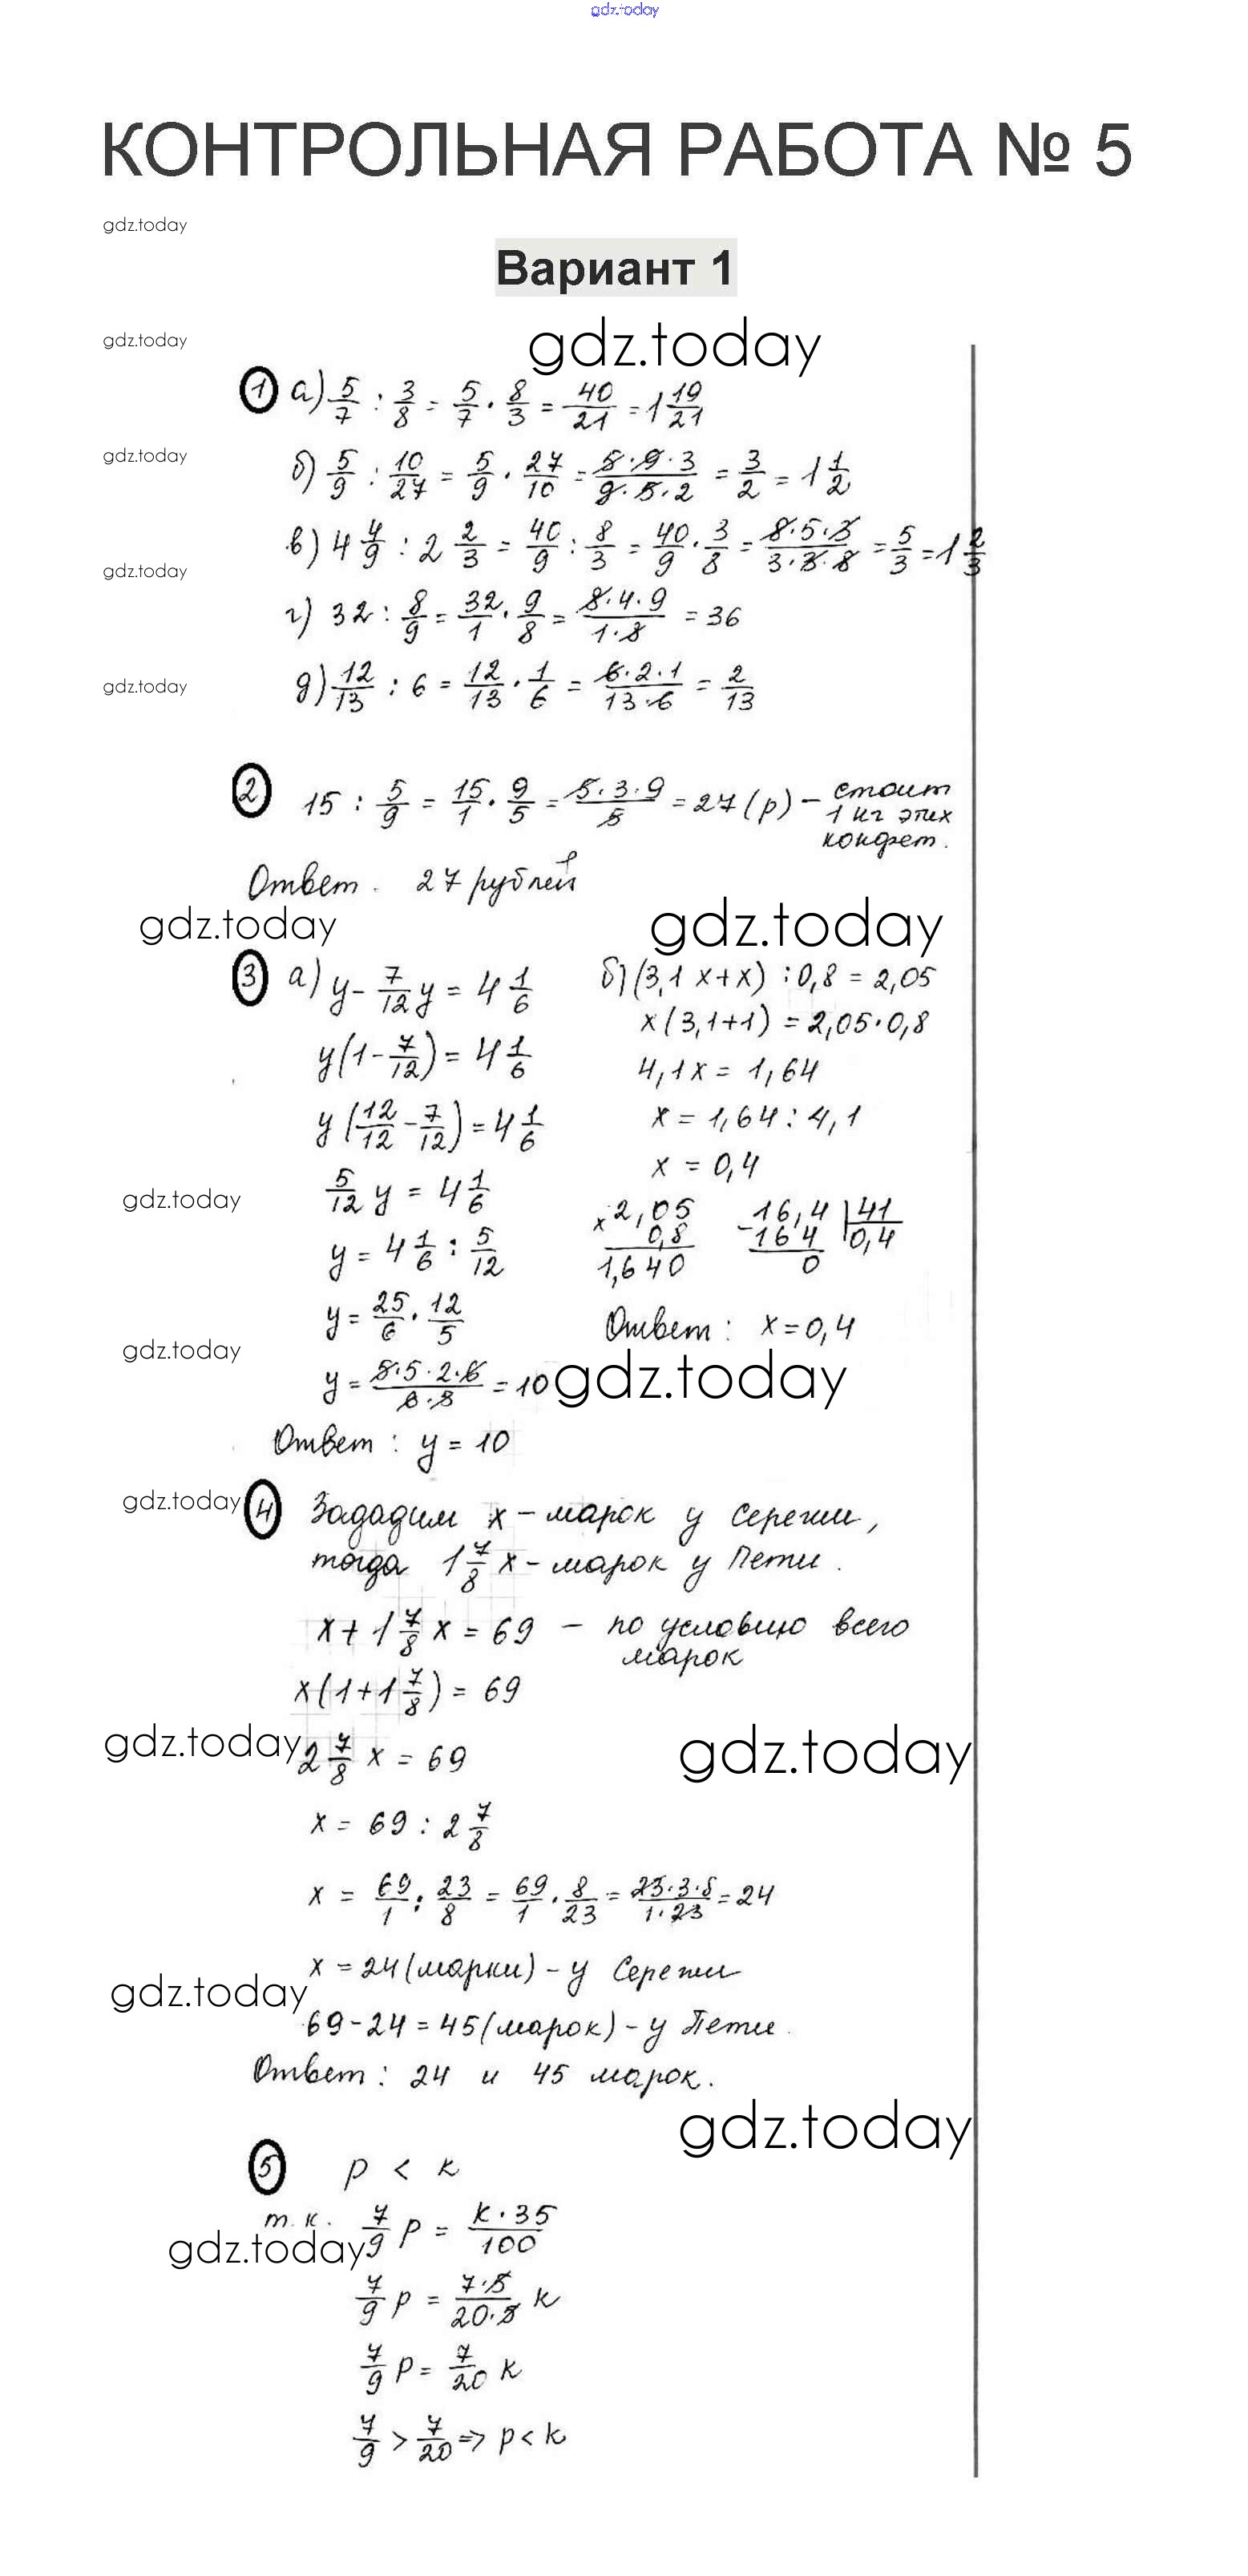 gdz.today
КОНТРОЛЬНАЯ РАБОТА № 5
gdz.today
Вариант 1
gdz.today
gdz.today
1 а) 5/7 : 3/8 = 5/7 · 8/3 = 40/21 = 1 19/21
gdz.today
б) 5/9 : 10/27 = 5/9 · 27/10 = 5·9·3/9·5·2 = 3/2 = 1 1/2
в) 4 4/9 : 2 2/3 = 40/9 : 8/3 = 40/9 · 3/8 = 8·5·3/3·3·8 = 5/3 = 1 2/3
gdz.today
г) 32 : 8/9 = 32/1 · 9/8 = 8·4·9/1·8 = 36
gdz.today
д) 12/13 : 6 = 12/13 · 1/6 = 6·2·1/13·6 = 2/13
2 15 : 5/9 = 15/1 · 9/5 = 5·3·9/5 = 27 (р) – стоит
1 кг этих
конфет.
Ответ. 27 рублей
gdz.today
gdz.today
3 а) y - 7/12 y = 4 1/6
y(1 - 7/12) = 4 1/6
y(12/12 - 7/12) = 4 1/6
5/12 y = 4 1/6
gdz.today
y = 4 1/6 : 5/12
y = 25/6 · 12/5
gdz.today
y = 5·5·2·6/6·5 = 10
Ответ: y = 10
б) (3,1 x + x) : 0,8 = 2,05
x (3,1+1) = 2,05·0,8
4,1x = 1,64
x = 1,64 : 4,1
x = 0,4
x 2,05
0,8
1,640
- 16,4 | 41
16 4 | 0,4
0
Ответ: x = 0,4
gdz.today
gdz.today
4 Зададим x – марок у Сережи,
тогда 1 7/8 x – марок у Пети.
x + 1 7/8 x = 69 – по условию всего
марок
x(1 + 1 7/8) = 69
gdz.today
gdz.today
2 7/8 x = 69
x = 69 : 2 7/8
x = 69/1 : 23/8 = 69/1 · 8/23 = 23·3·8/1·23 = 24
x = 24 (марки) – у Сережи
gdz.today
69 - 24 = 45 (марок) – у Пети.
Ответ: 24 и 45 марок.
gdz.today
5 p < k
т.к. 7/9 p = k·35/100
gdz.today
7/9 p = 7·5/20·5 k
7/9 p = 7/20 k
7/9 > 7/20 => p < k